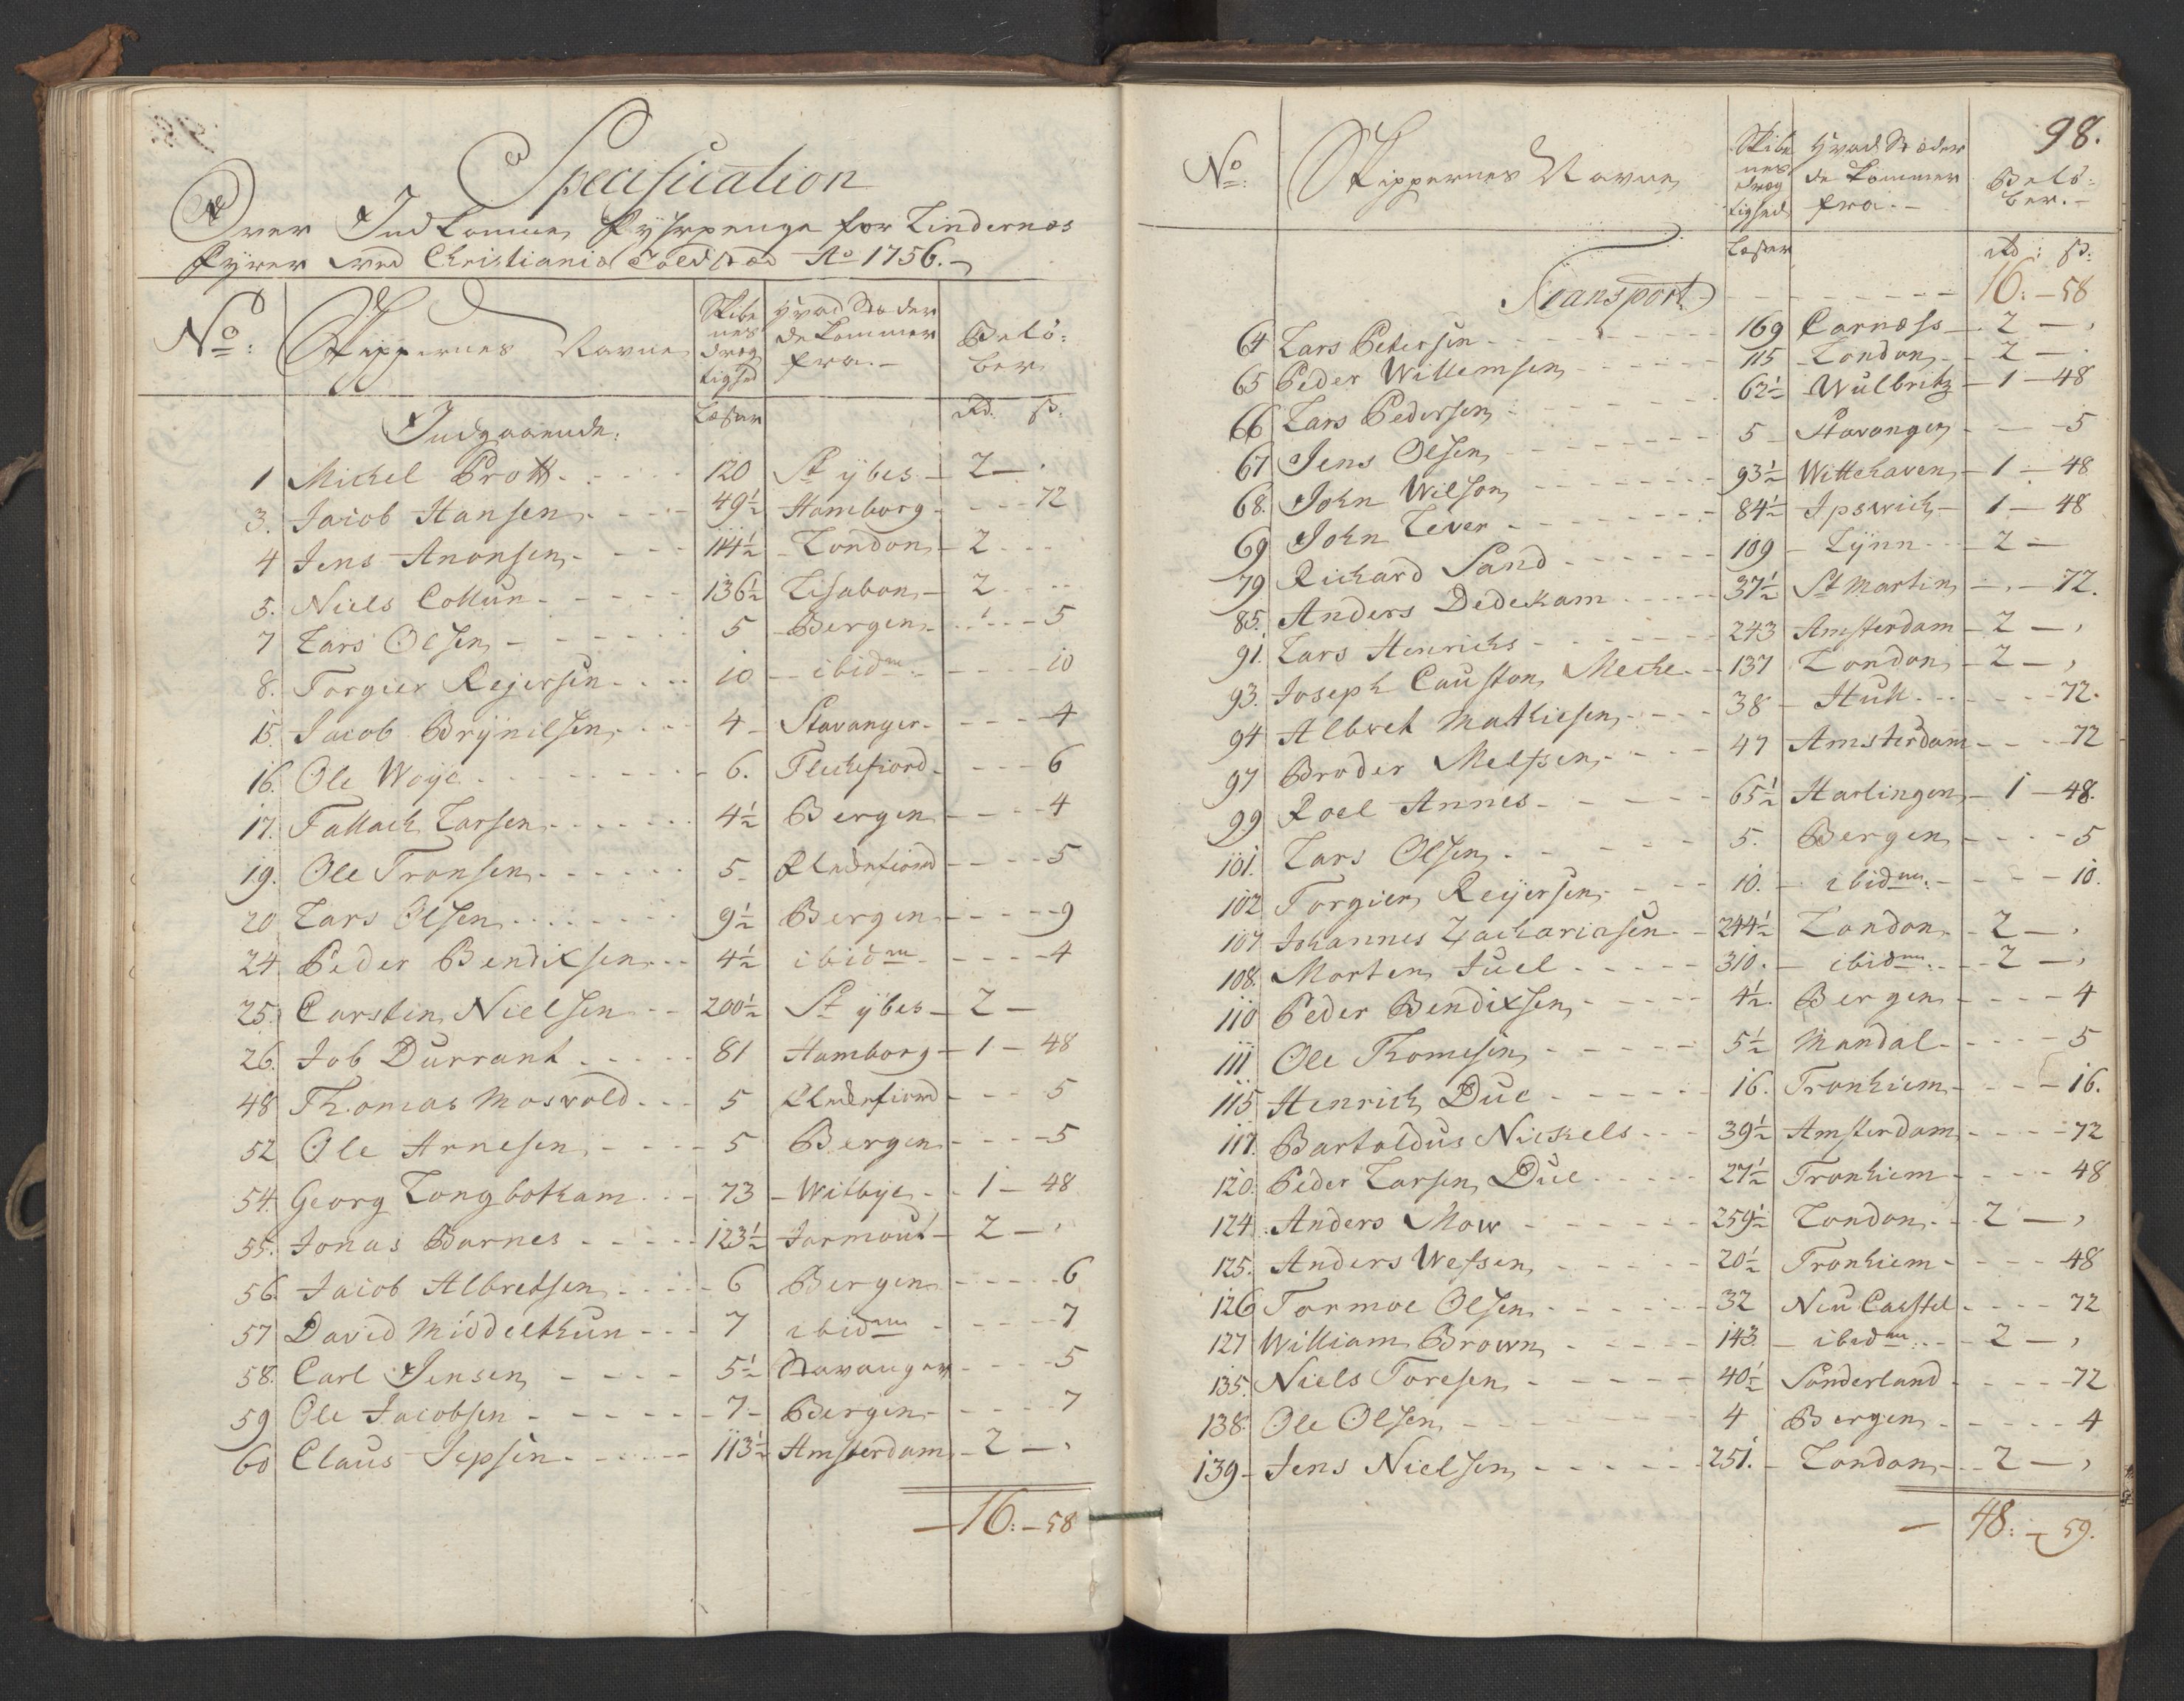 Specification
Over Indkomne Fyhrpenge for Lindernæs
Fyrer ved Christiania Toldstæd Ao 1756.
No: Skippernes Navne Skibenes drægtighed Hvad Stæder de kommer fra.- Beløber
Indgaaende. Læster Rd. ß.
1 Michel Prott 120 St ÿbes 2 -
3. Jacob Hansen 49½ Hamborg 72
4 Jens Anonsen 114½ London 2
5. Niels Collun 136½ Lisabon 2
7 Lars Olsen 5 Bergen 5
8. Torgier Rejersen 10 ibidm 10
15. Jacob Brÿnilsen 4 Stavanger 4
16. Ole Woÿe 6. Flechefiord 6
17. Tallach Larsen 4½ Bergen 4
19. Ole Tronsen 5 5
20 Lars Olsen 9½ Bergen 9
24 Peder Bendixsen 4½ ibidm 4
25. Carsten Nielsen 200½ St ÿbes 2 -
26. Job Durrant 81 Hamborg 1 - 48
48 Thomas Mosvold 5 5
52 Ole Arnesen 5 Bergen 5
54. Georg Longbotham 73 Witbÿe 1 - 48
55. Jonas Barnes 123½ Jarmout 2 -
56. Jacob Albretsen 6 Bergen 6
57 David Middelthun 7 ibidm 7
58. Carl Jensen 5½ Stavanger 5
59 Ole Jacobsen 7 Bergen 7
60 Claus Jepsen 113½ Amsterdam 2 -
16: - 58
98.
No: Skippernes Navne Skibenes drægtighed Hvad Stæder de kommer fra.- Beløber.-
Læster Rd: ß:
Transport 16: - 58
64 Lars Petersen 169 Carnæss 2 -
65 Peder Willemsen 115 London 2 -
66 Lars Pedersen 62½ Wulbritz 1 - 48
67 Jens Olsen 5 Stavanger 5
68. John Wilson 93½ Wittehaven 1 - 48
69 John Lever 84½ Ipswich 1 - 48
79 Richard Sand 109 Lÿnn 2 -
85. Anders Dedekam 37½ St Martin 72.
91. Lars Henrichs 243 Amsterdam 2 -
93. Joseph Causton Meche 137 London 2 -
94 Albret Mathiesen 38 Hull 72.
97 Broder Melfsen 47 Amsterdam 72
99 Roel Annes 65½ Harlingen 1 - 48.
101. Lars Olsen 5. Bergen 5
102 Torgier Reÿersen 10. ibidm: 10.
107 Johannes Zachariasen 244½ London 2 -
108. Morten Juel 310. ibidm: 2 -
110 Peder Bendixsen 4½. Bergen 4
111 Ole Thomesen 5½ Mandal 5
115 Henrich Due 16. Tronhiem 16.
117. Bartoldus Nickels 39½ Amsterdam 72
120. Peder Larsen Due 27½ Tronhiem 48
124. Anders Mow 259½ London 2 -
125. Anders Wefsen 20½ Tronhiem 48
126 Tormoe Olsen 32 Neu Casstel 72
127 William Brown 143. ibidm: 2 -
135. Niels Toresen 40½ Sonderland 72
138. Ole Olsen 4 Bergen 4
139 Jens Nielsen 251. London 2 -
48: - 59.